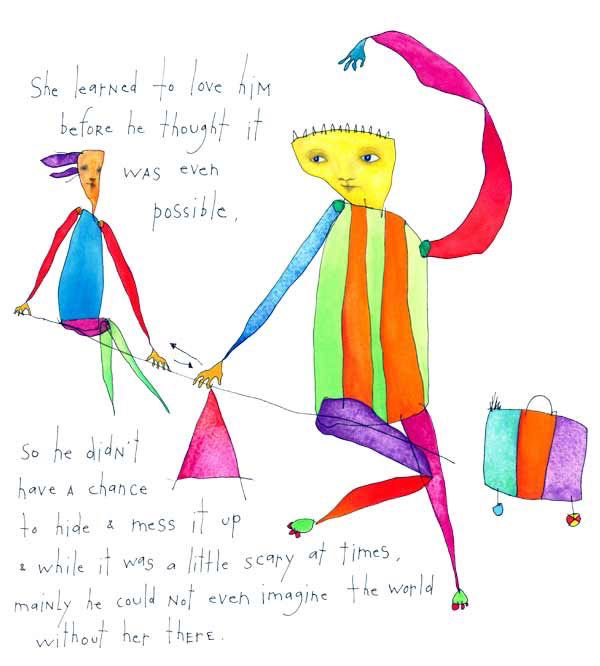 She learned to love him
before he thought it
was even
possible,
so he didn't
have a chance
to hide & mess it up
& while it was a little scary at times,
mainly he could not even imagine the world
without her there.